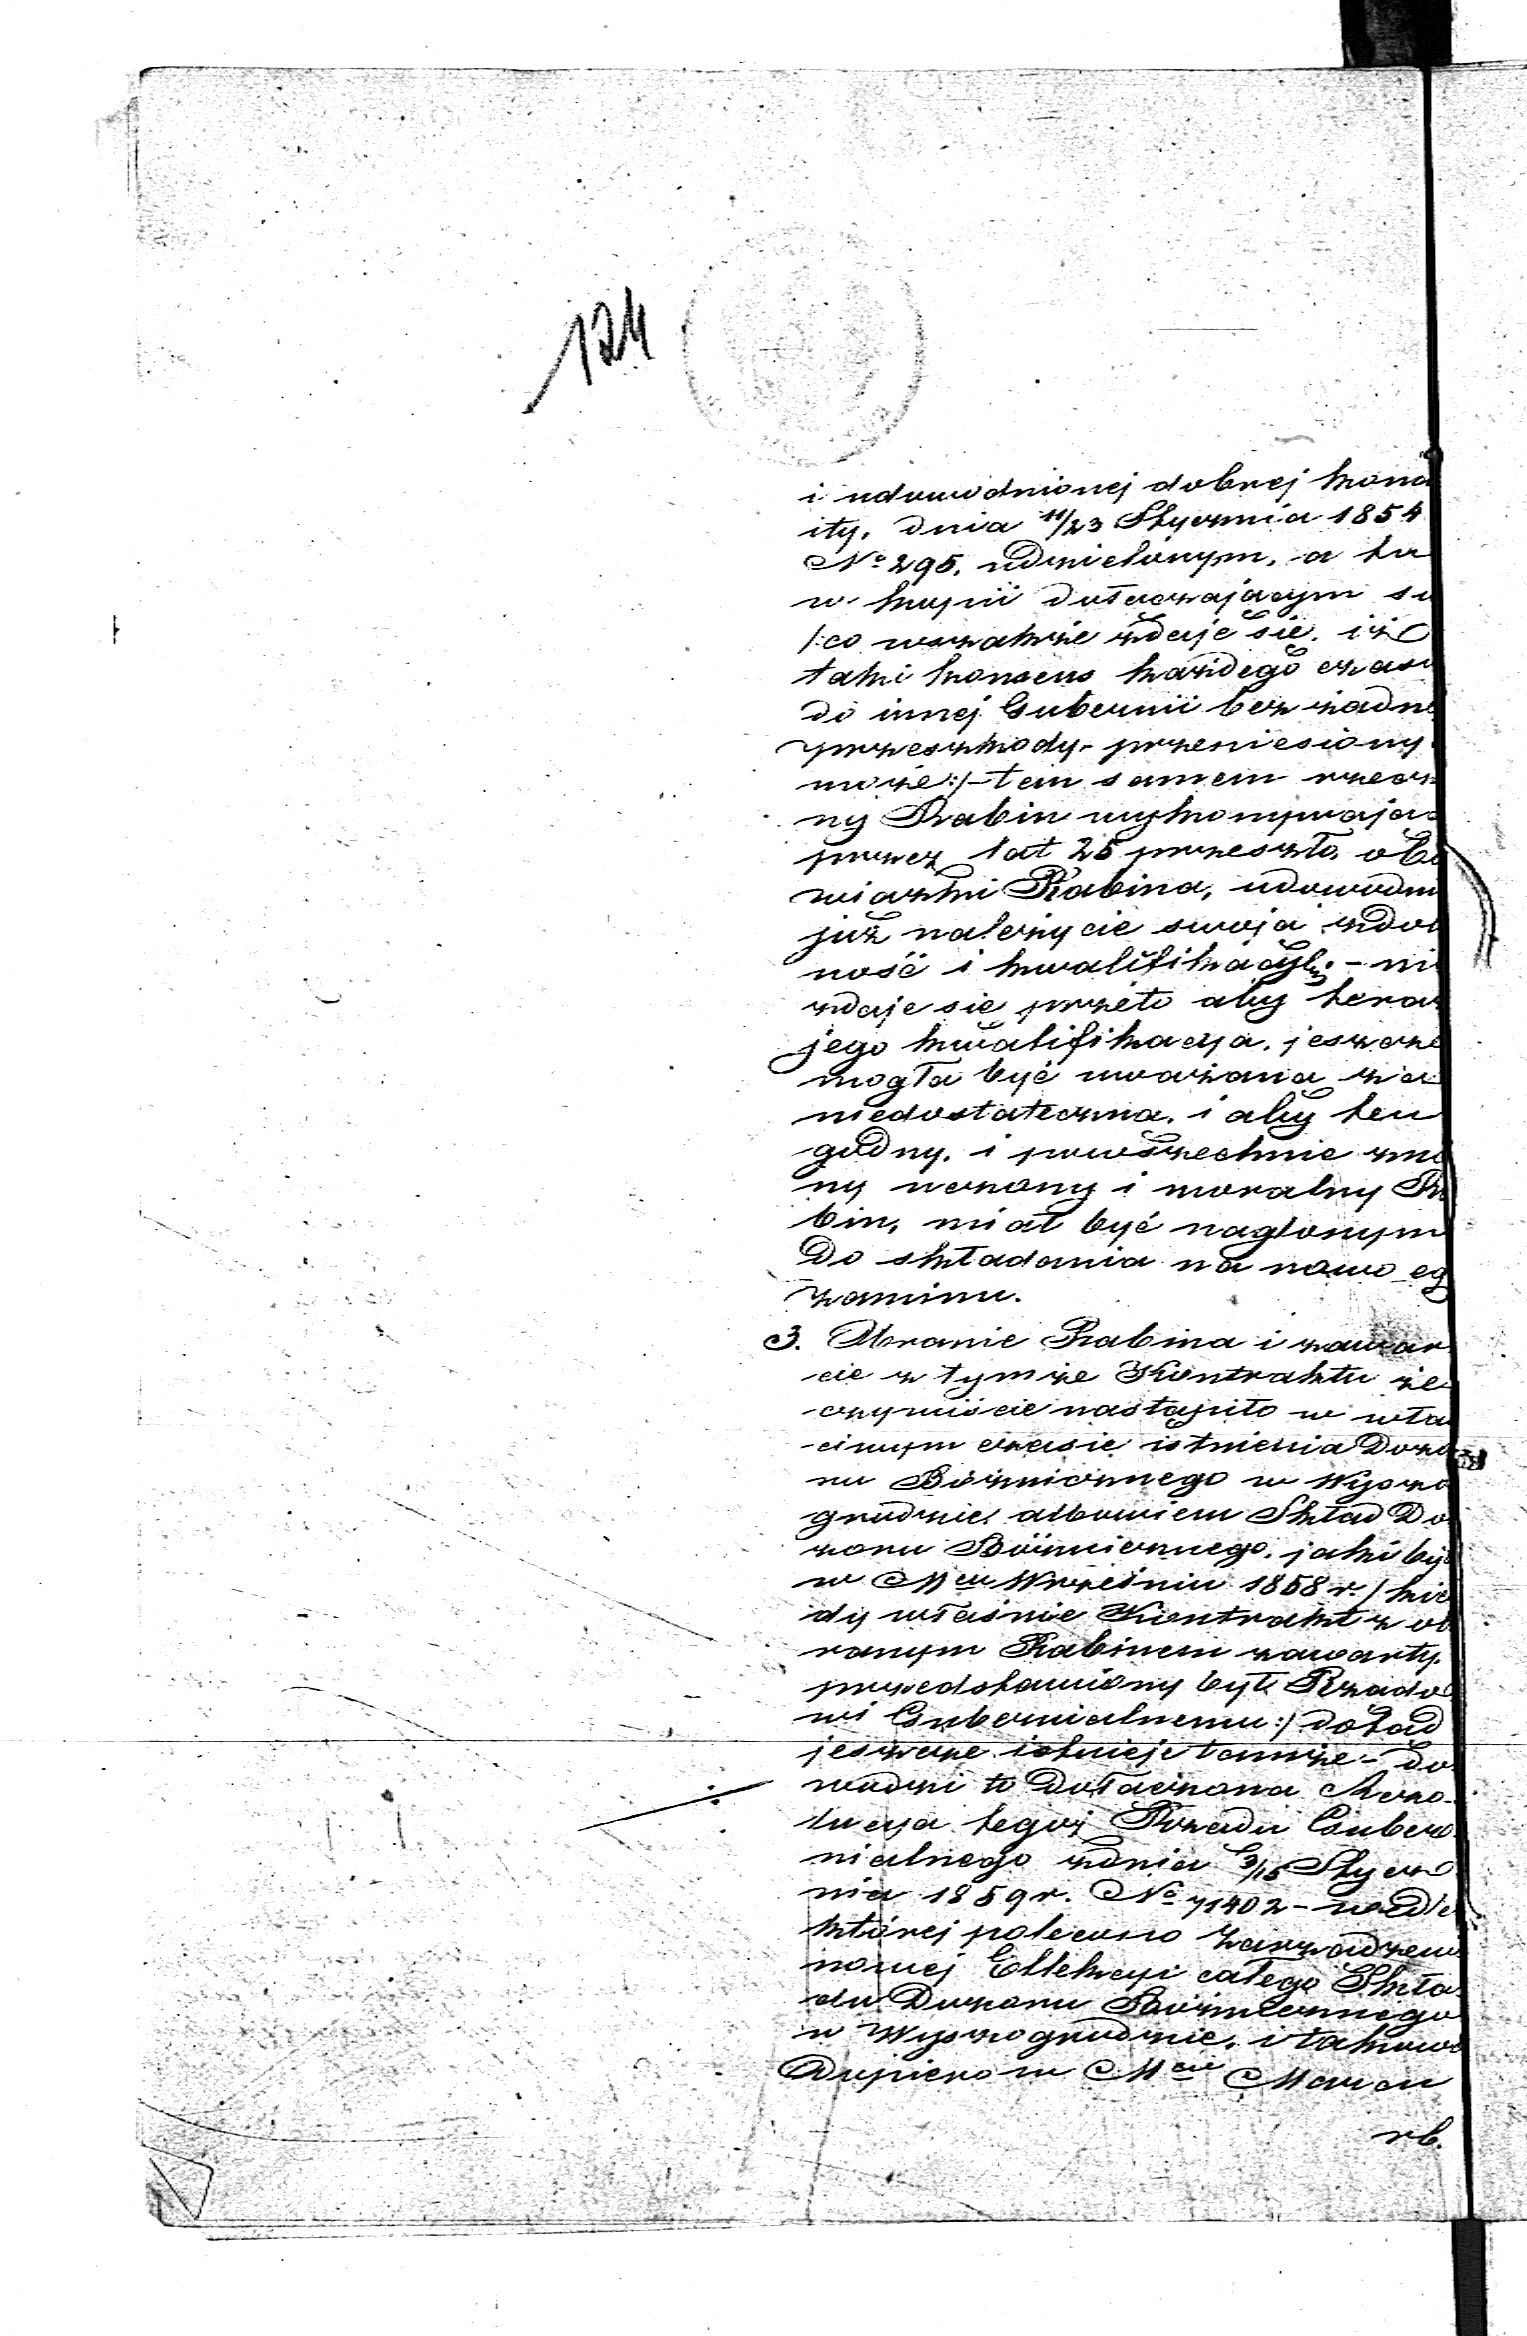 124
i udowodnionej dobrej kond
ity, dnia 11/23 Stycznia 1854
No 295. udzielonym, a tu
w kopii dołączającym się
/:co wszakże zdaje się, iż
taki konsens każdego czasu
do innej Gubernii bez żadne
przeszkody przeniesiony
może:/ - tem samem rzeczo
ny Rabin wykonywając
przez lat 25 przeszło, obo
wiązki Rabina, udowodni
już należycie swoją zdol
ność i kwalifikacyę; - ni
zdaje się przeto aby teraz
jego kwalifikacya, jeszcze
mogła być uważana za
niedostateczną, i aby ten
godny, i powszechnie zna
ny uczony i moralny Ra
bin, miał być naglonym
do składania na nowo eg
zaminu.
3. Obranie Rabina i zawar
cie z tymże Kontraktu rze
czywiście nastąpiło w wła
ciwym czasie istnienia Dozo
ru Bóżnicznego w Wyszo
grodzie, albowiem Skład Do
zoru Bóżnicznego, jaki był
w Mcu Wrześniu 1858 r. /:kie
dy właśnie Kontrakt z ob
ranym Rabinem zawarty,
przedstawiony był Rządo
wi Gubernialnemu:/ dotąd
jeszcze istnieje tamże - do
wodzi to dołączona Rezo-
lucya tegoż Rządu Guber
nialnego z dnia 3/15 Stycz
nia 1859 r. No 71402 - wedle
której polecono zarządzenie
nowej Ellekcyi całego Skła
du Dozoru Bóżnicznego
w Wyszogrodzie, i takowa
dopiero w Mcu Marcu
rb.